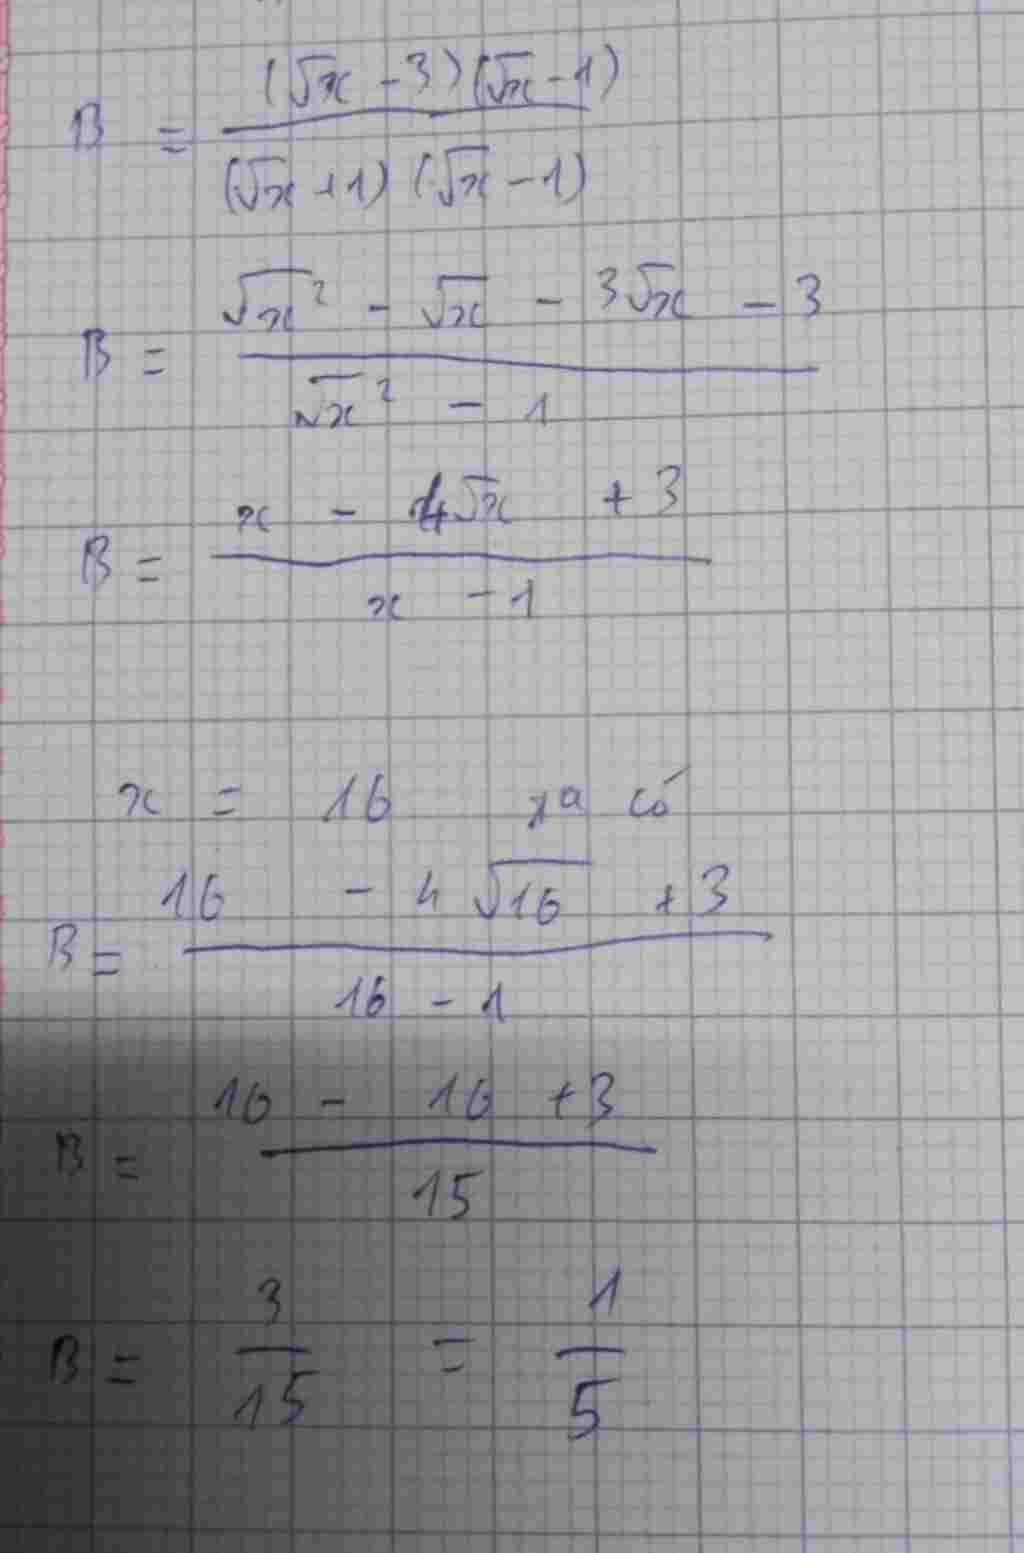 B = (√x - 3)(√x - 1) / (√x + 1)(√x - 1)
B = √x² - √x - 3√x - 3 / √x² - 1
B = x - 4√x + 3 / x - 1
x = 16 ta có
B = 16 - 4√16 + 3 / 16 - 1
B = 16 - 16 + 3 / 15
B = 3/15 = 1/5